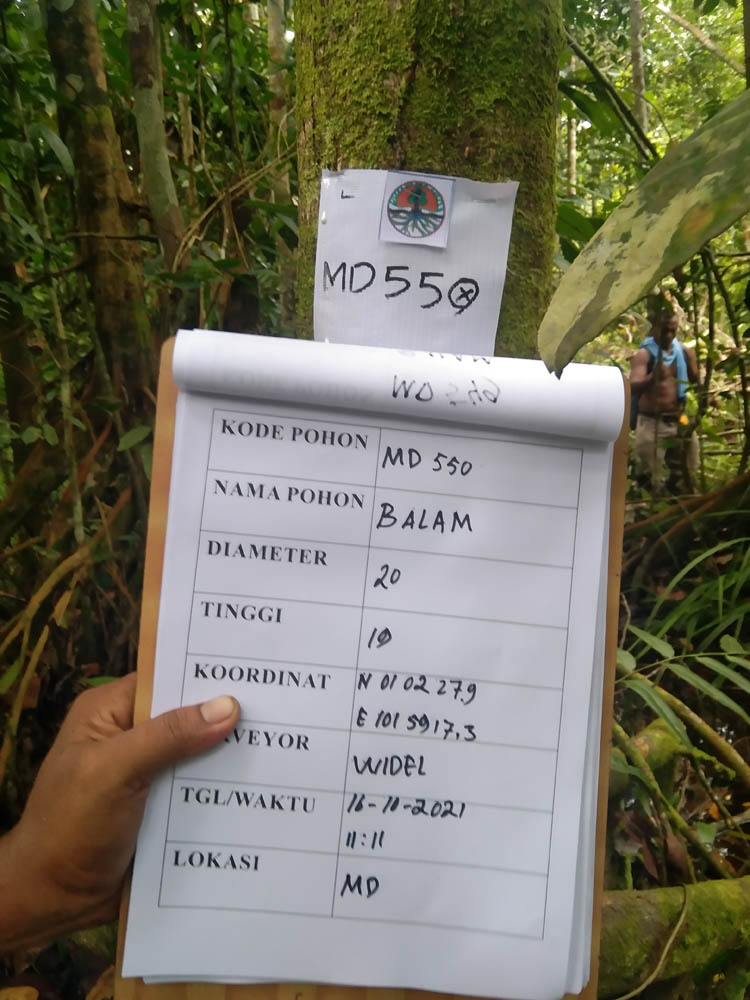 MD 550
KODE POHON MD 550
NAMA POHON BALAM
DIAMETER 20
TINGGI 10
KOORDINAT N 01 02 27.9
E 101 59 17.3
VEYOR WIDEL
TGL/WAKTU 16-10-2021
11:11
LOKASI MD